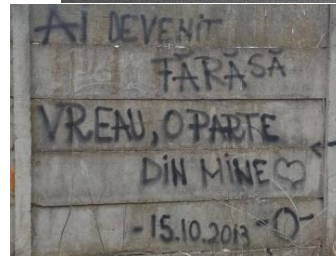 AI DEVENIT
FĂRĂ SĂ
VREAU, O PARTE
DIN MINE ♡
- 15.10.2013 -O-